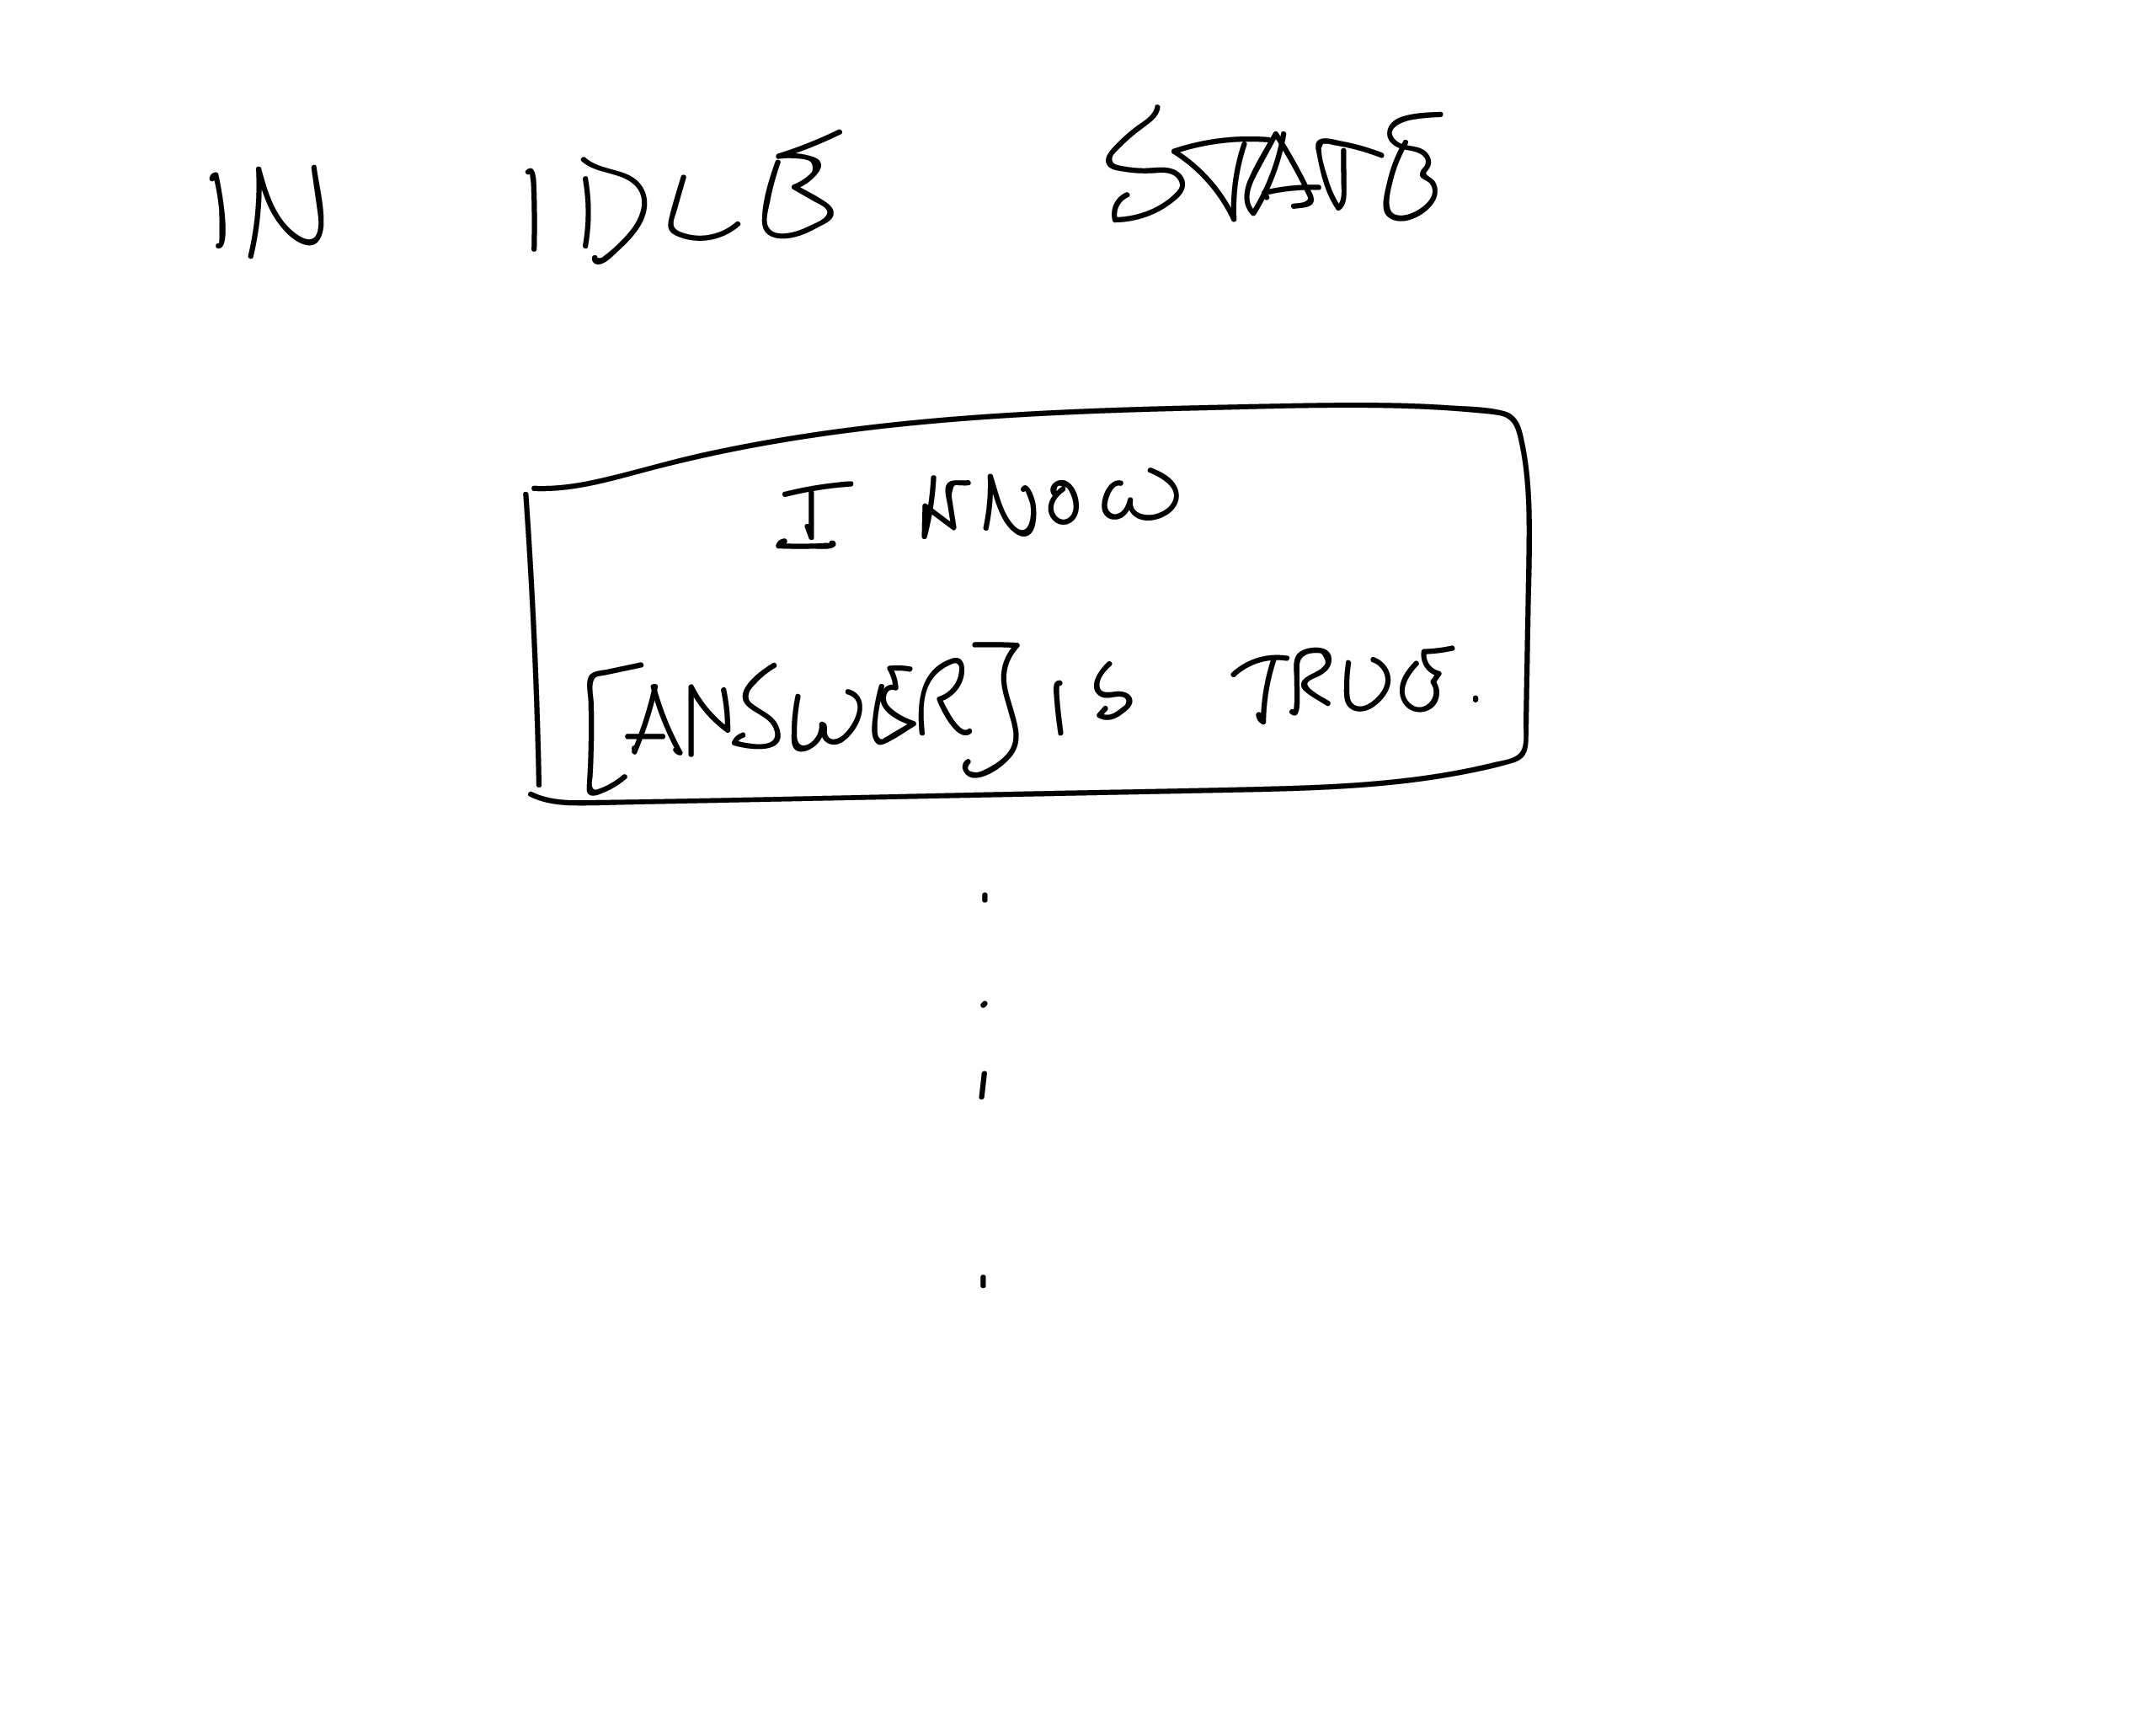 IN IDLE STATE
I KNOW
[ANSWER] IS TRUE.